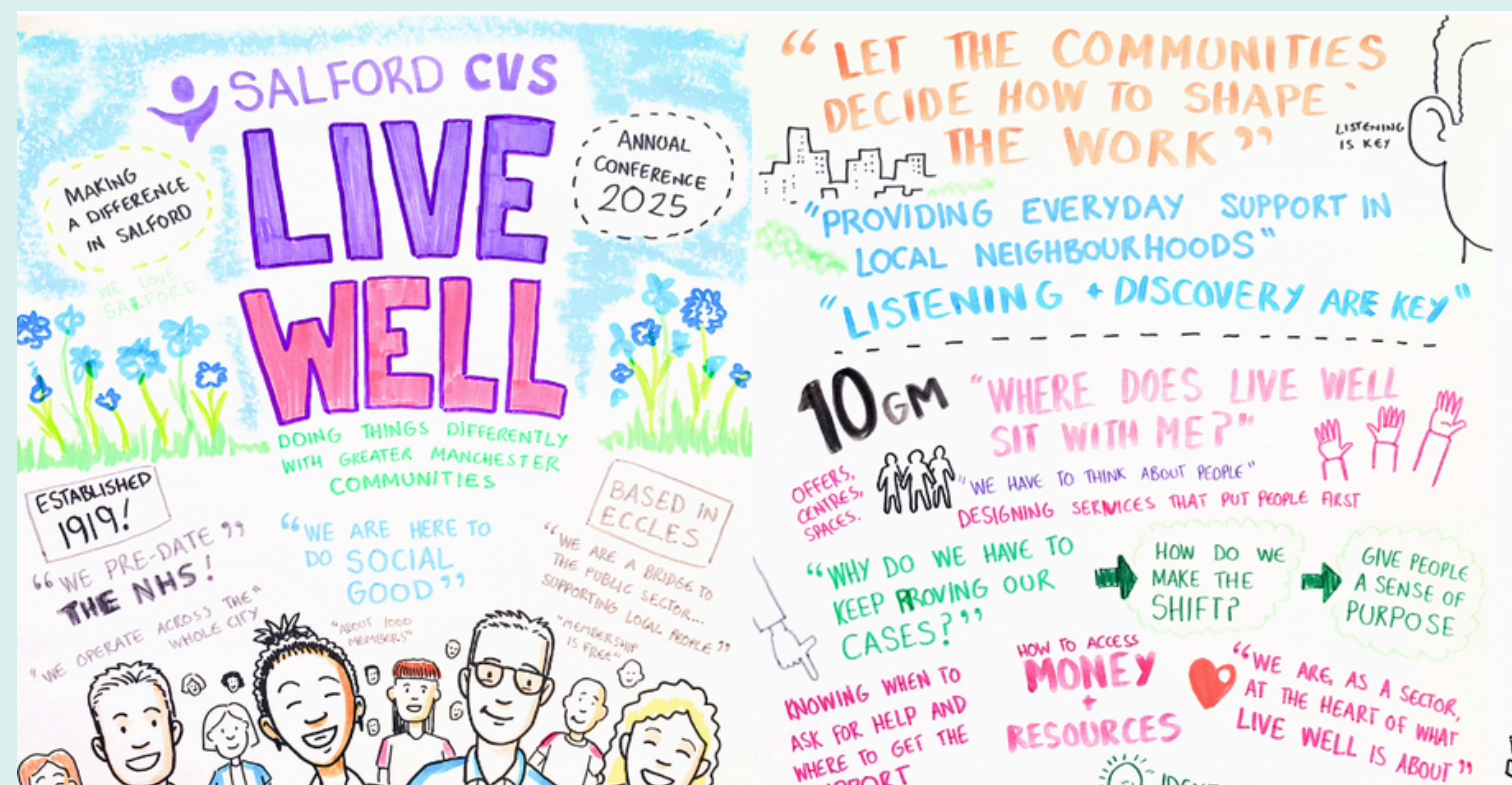 SALFORD CVS
LIVE
WELL
MAKING
A DIFFERENCE
IN SALFORD
WE LOVE
SALFORD
ANNUAL
CONFERENCE
2025
DOING THINGS DIFFERENTLY
WITH GREATER MANCHESTER
COMMUNITIES
ESTABLISHED
1919!
"WE PRE-DATE"
THE NHS!
"WE OPERATE ACROSS THE"
WHOLE CITY
"WE ARE HERE TO
DO SOCIAL
GOOD"
"ABOUT 1000
MEMBERS"
BASED IN
ECCLES
"WE ARE A BRIDGE TO
THE PUBLIC SECTOR...
SUPPORTING LOCAL PEOPLE"
"MEMBERSHIP
IS FREE"
"LET THE COMMUNITIES
DECIDE HOW TO SHAPE
THE WORK"
LISTENING
IS KEY
"PROVIDING EVERYDAY SUPPORT IN
LOCAL NEIGHBOURHOODS"
"LISTENING + DISCOVERY ARE KEY"
10GM
OFFERS,
CENTRES,
SPACES.
"WHERE DOES LIVE WELL
SIT WITH ME?"
"WE HAVE TO THINK ABOUT PEOPLE"
DESIGNING SERVICES THAT PUT PEOPLE FIRST
"WHY DO WE HAVE TO
KEEP PROVING OUR
CASES?"
HOW DO WE
MAKE THE
SHIFT?
GIVE PEOPLE
A SENSE OF
PURPOSE
KNOWING WHEN TO
ASK FOR HELP AND
WHERE TO GET THE
HOW TO ACCESS
MONEY
+
RESOURCES
"WE ARE, AS A SECTOR,
AT THE HEART OF WHAT
LIVE WELL IS ABOUT"